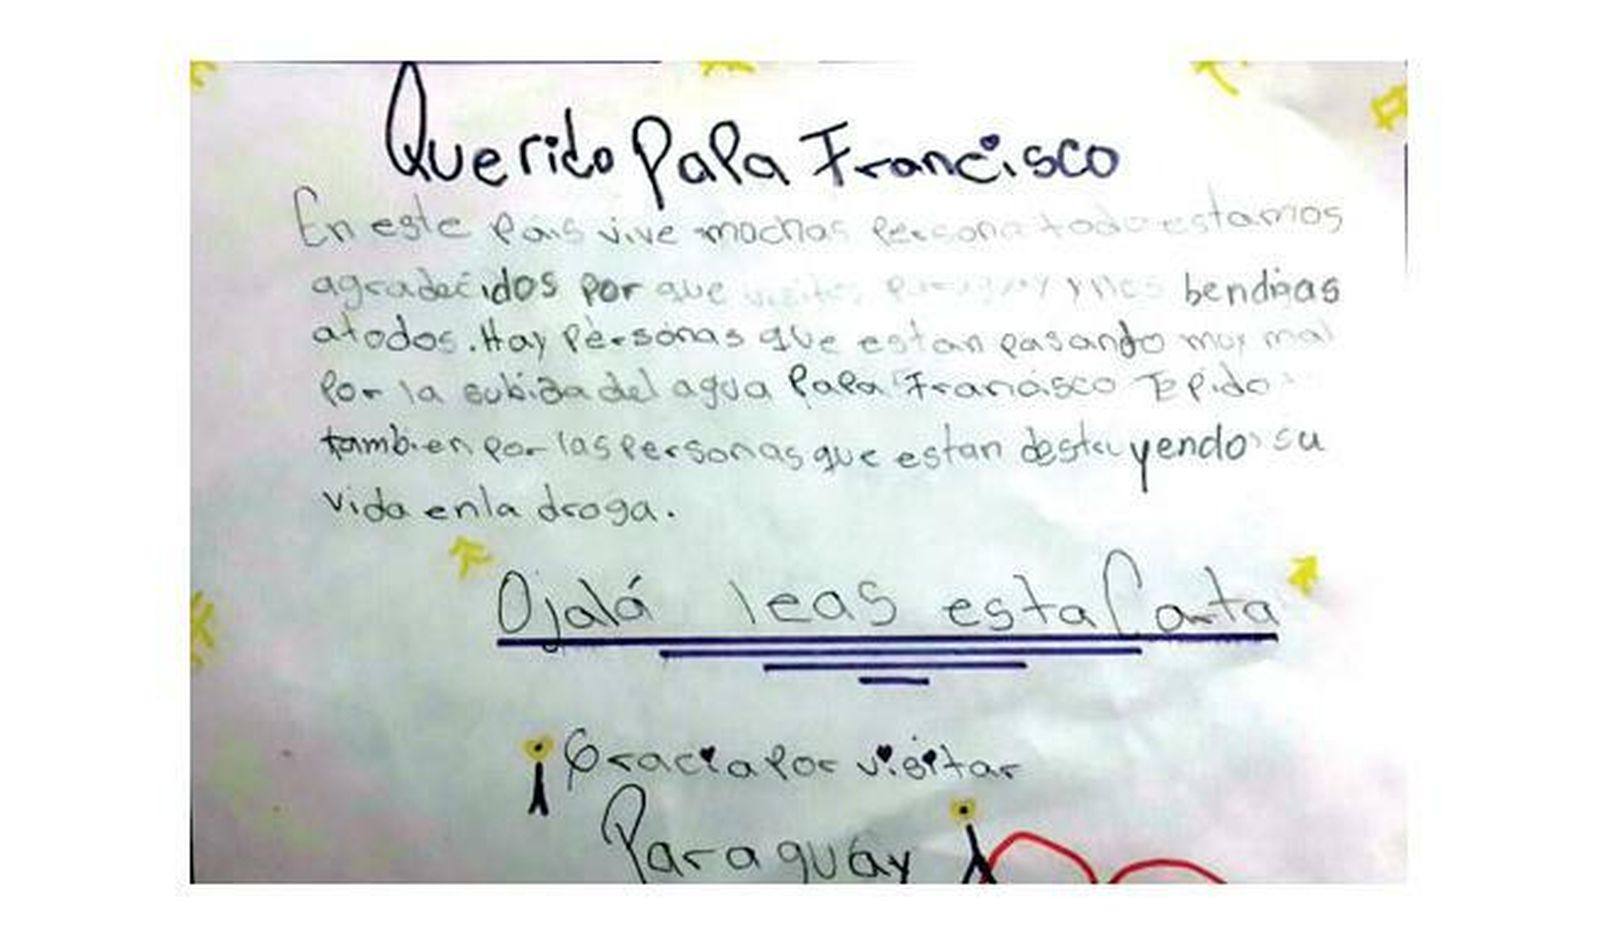 Querido Papa Francisco
En este pais vive mochas persona todo estamos
agradecidos por que visites paraguay y nos bendigas
atodos. Hay personas que estan pasando muy mal
por la subida del agua Papa Francisco Te pido
tambien por las personas que estan destruyendo su
vida en la droga.
Ojalá leas esta Carta
¡Gracia por visitar
Paraguay